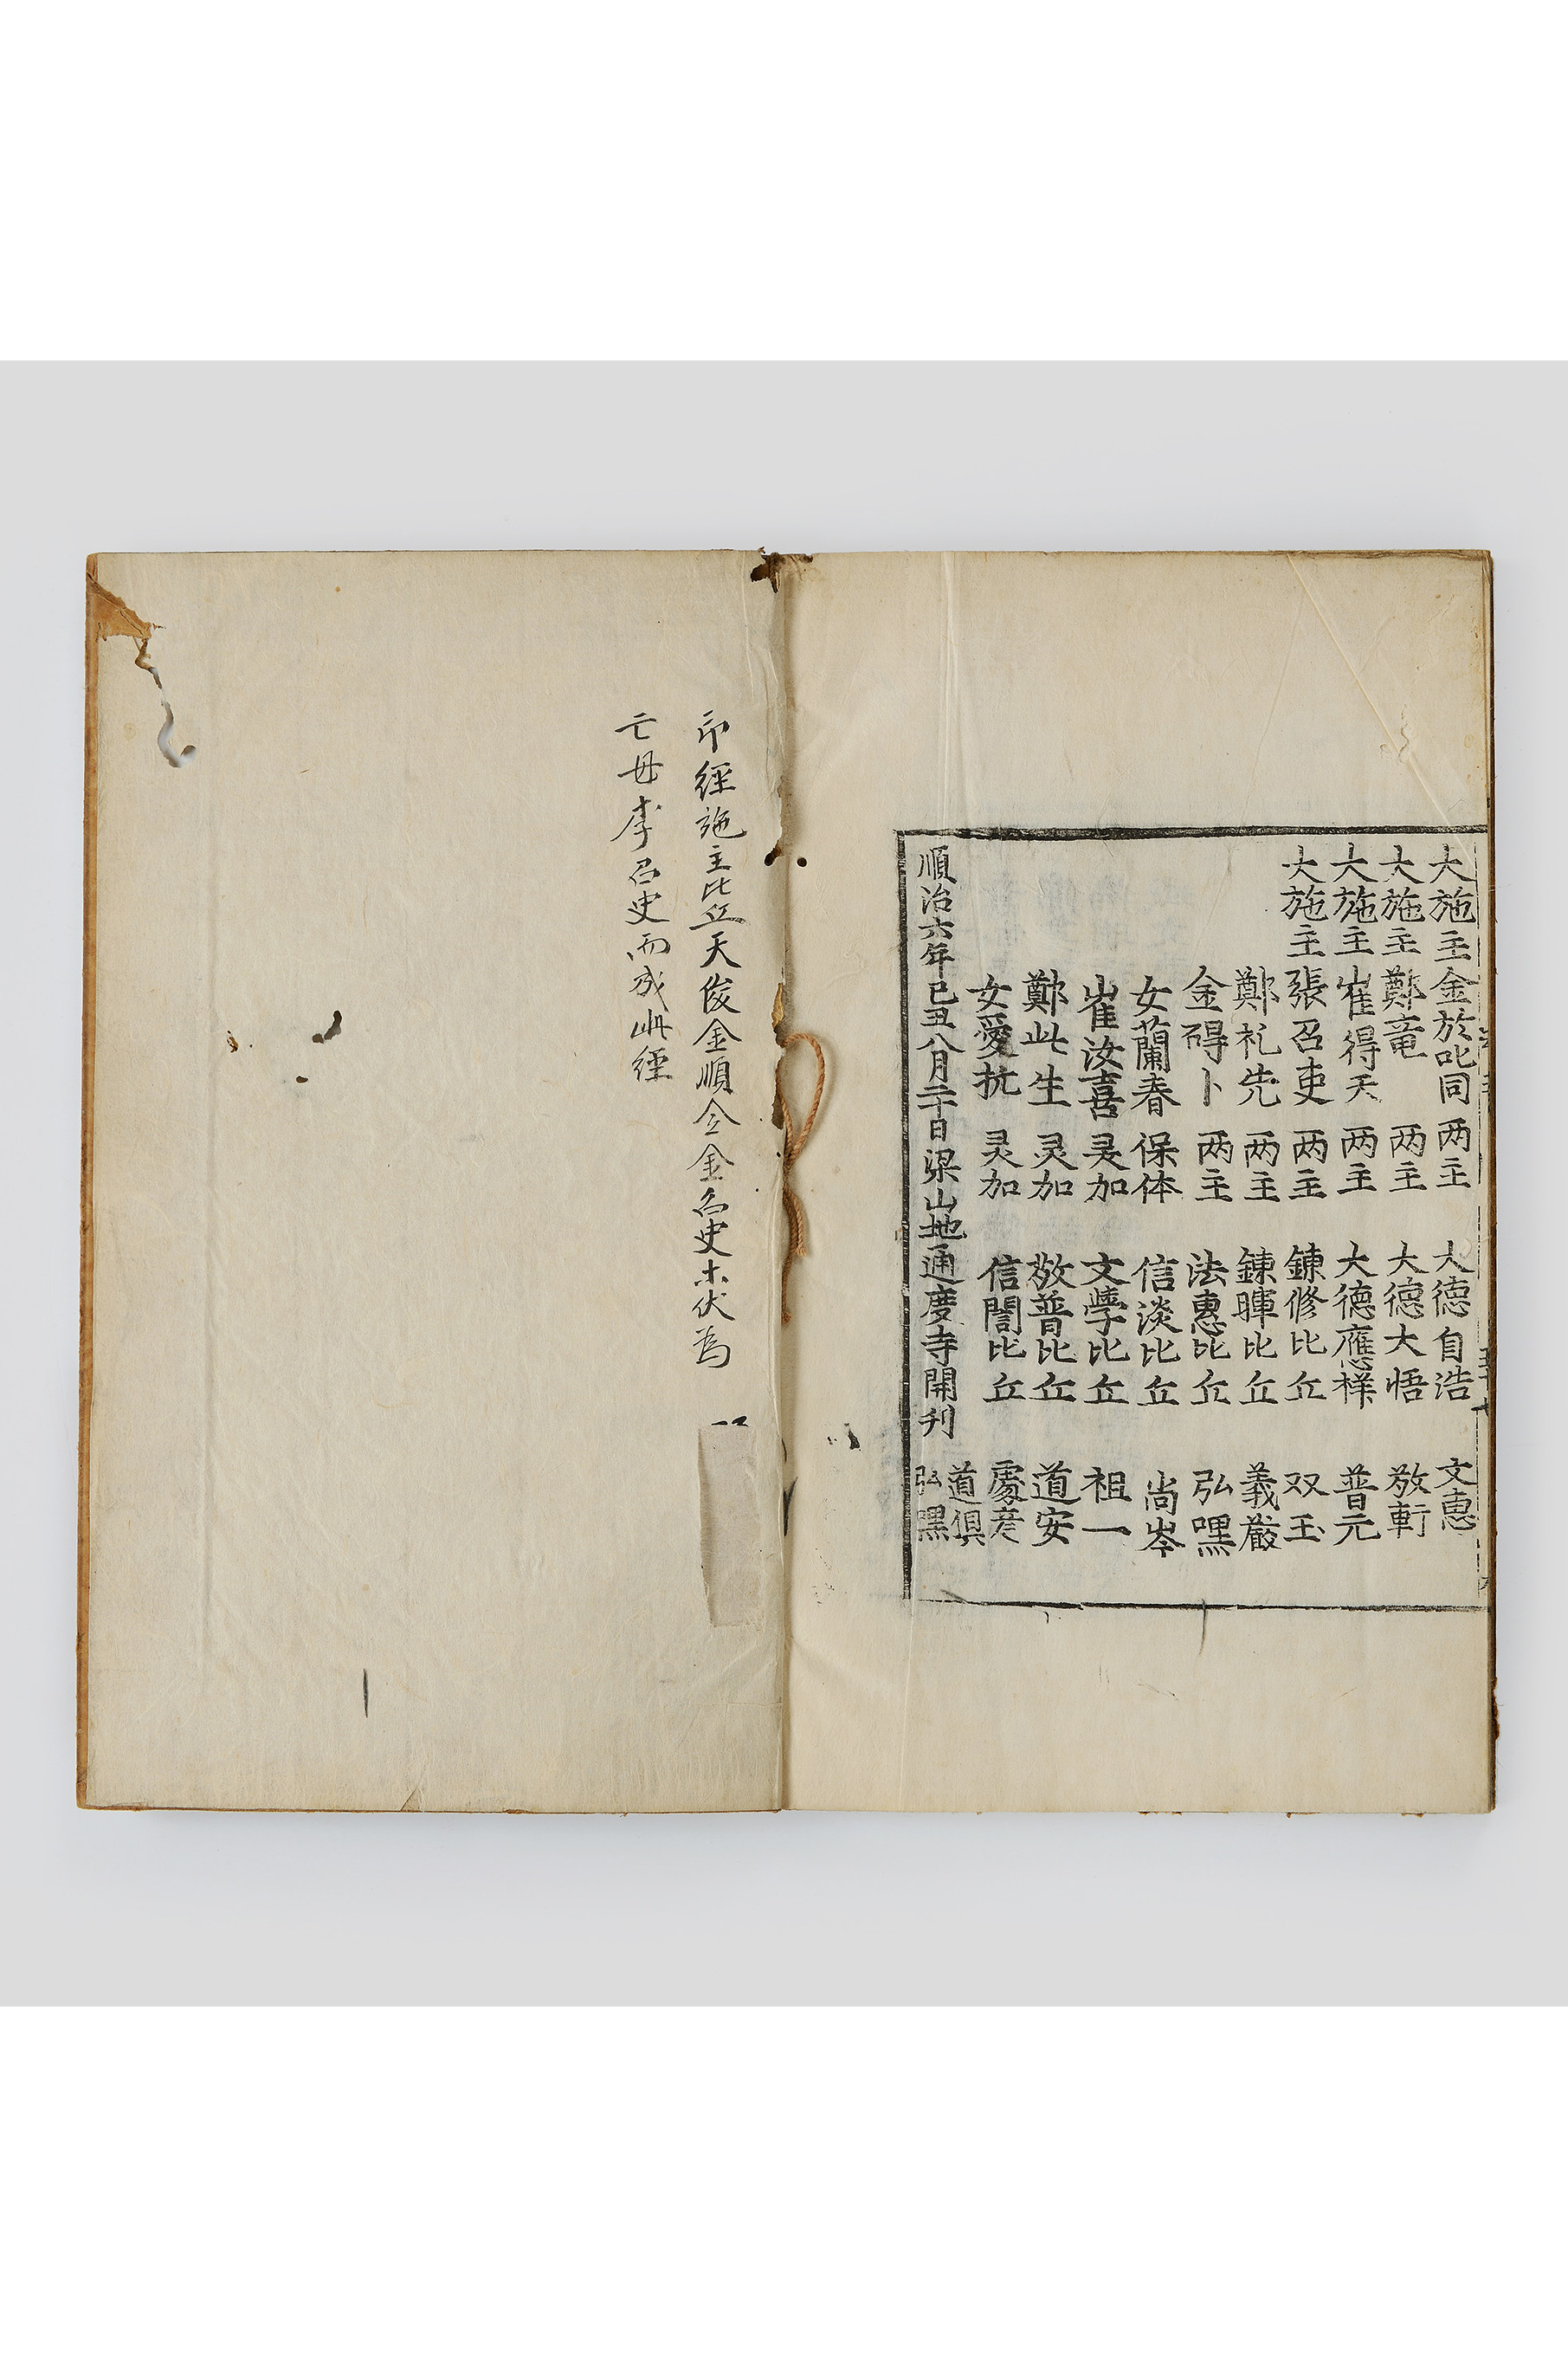 大施主金於叱同 两主 大德自浩 文惠
大施主鄭竜 两主 大德大悟 敬軒
大施主崔得天 两主 大德應様 普元
大施主張召吏 两主 錬修比丘 双玉
鄭礼先 两主 錬暉比丘 義嚴
金碍卜 两主 法惠比丘 弘嘿
女蘭春 保体 信淡比丘 尚岑
崔汝喜 灵加 文學比丘 祖一
鄭此生 灵加 敬普比丘 道安
女愛抗 灵加 信誾比丘 處彦
道俱
順治六年己丑八月二十日梁山地通度寺開刊 弘嘿
印經施主比丘天俊金順金金召史木伏為
亡母李召史而成此經